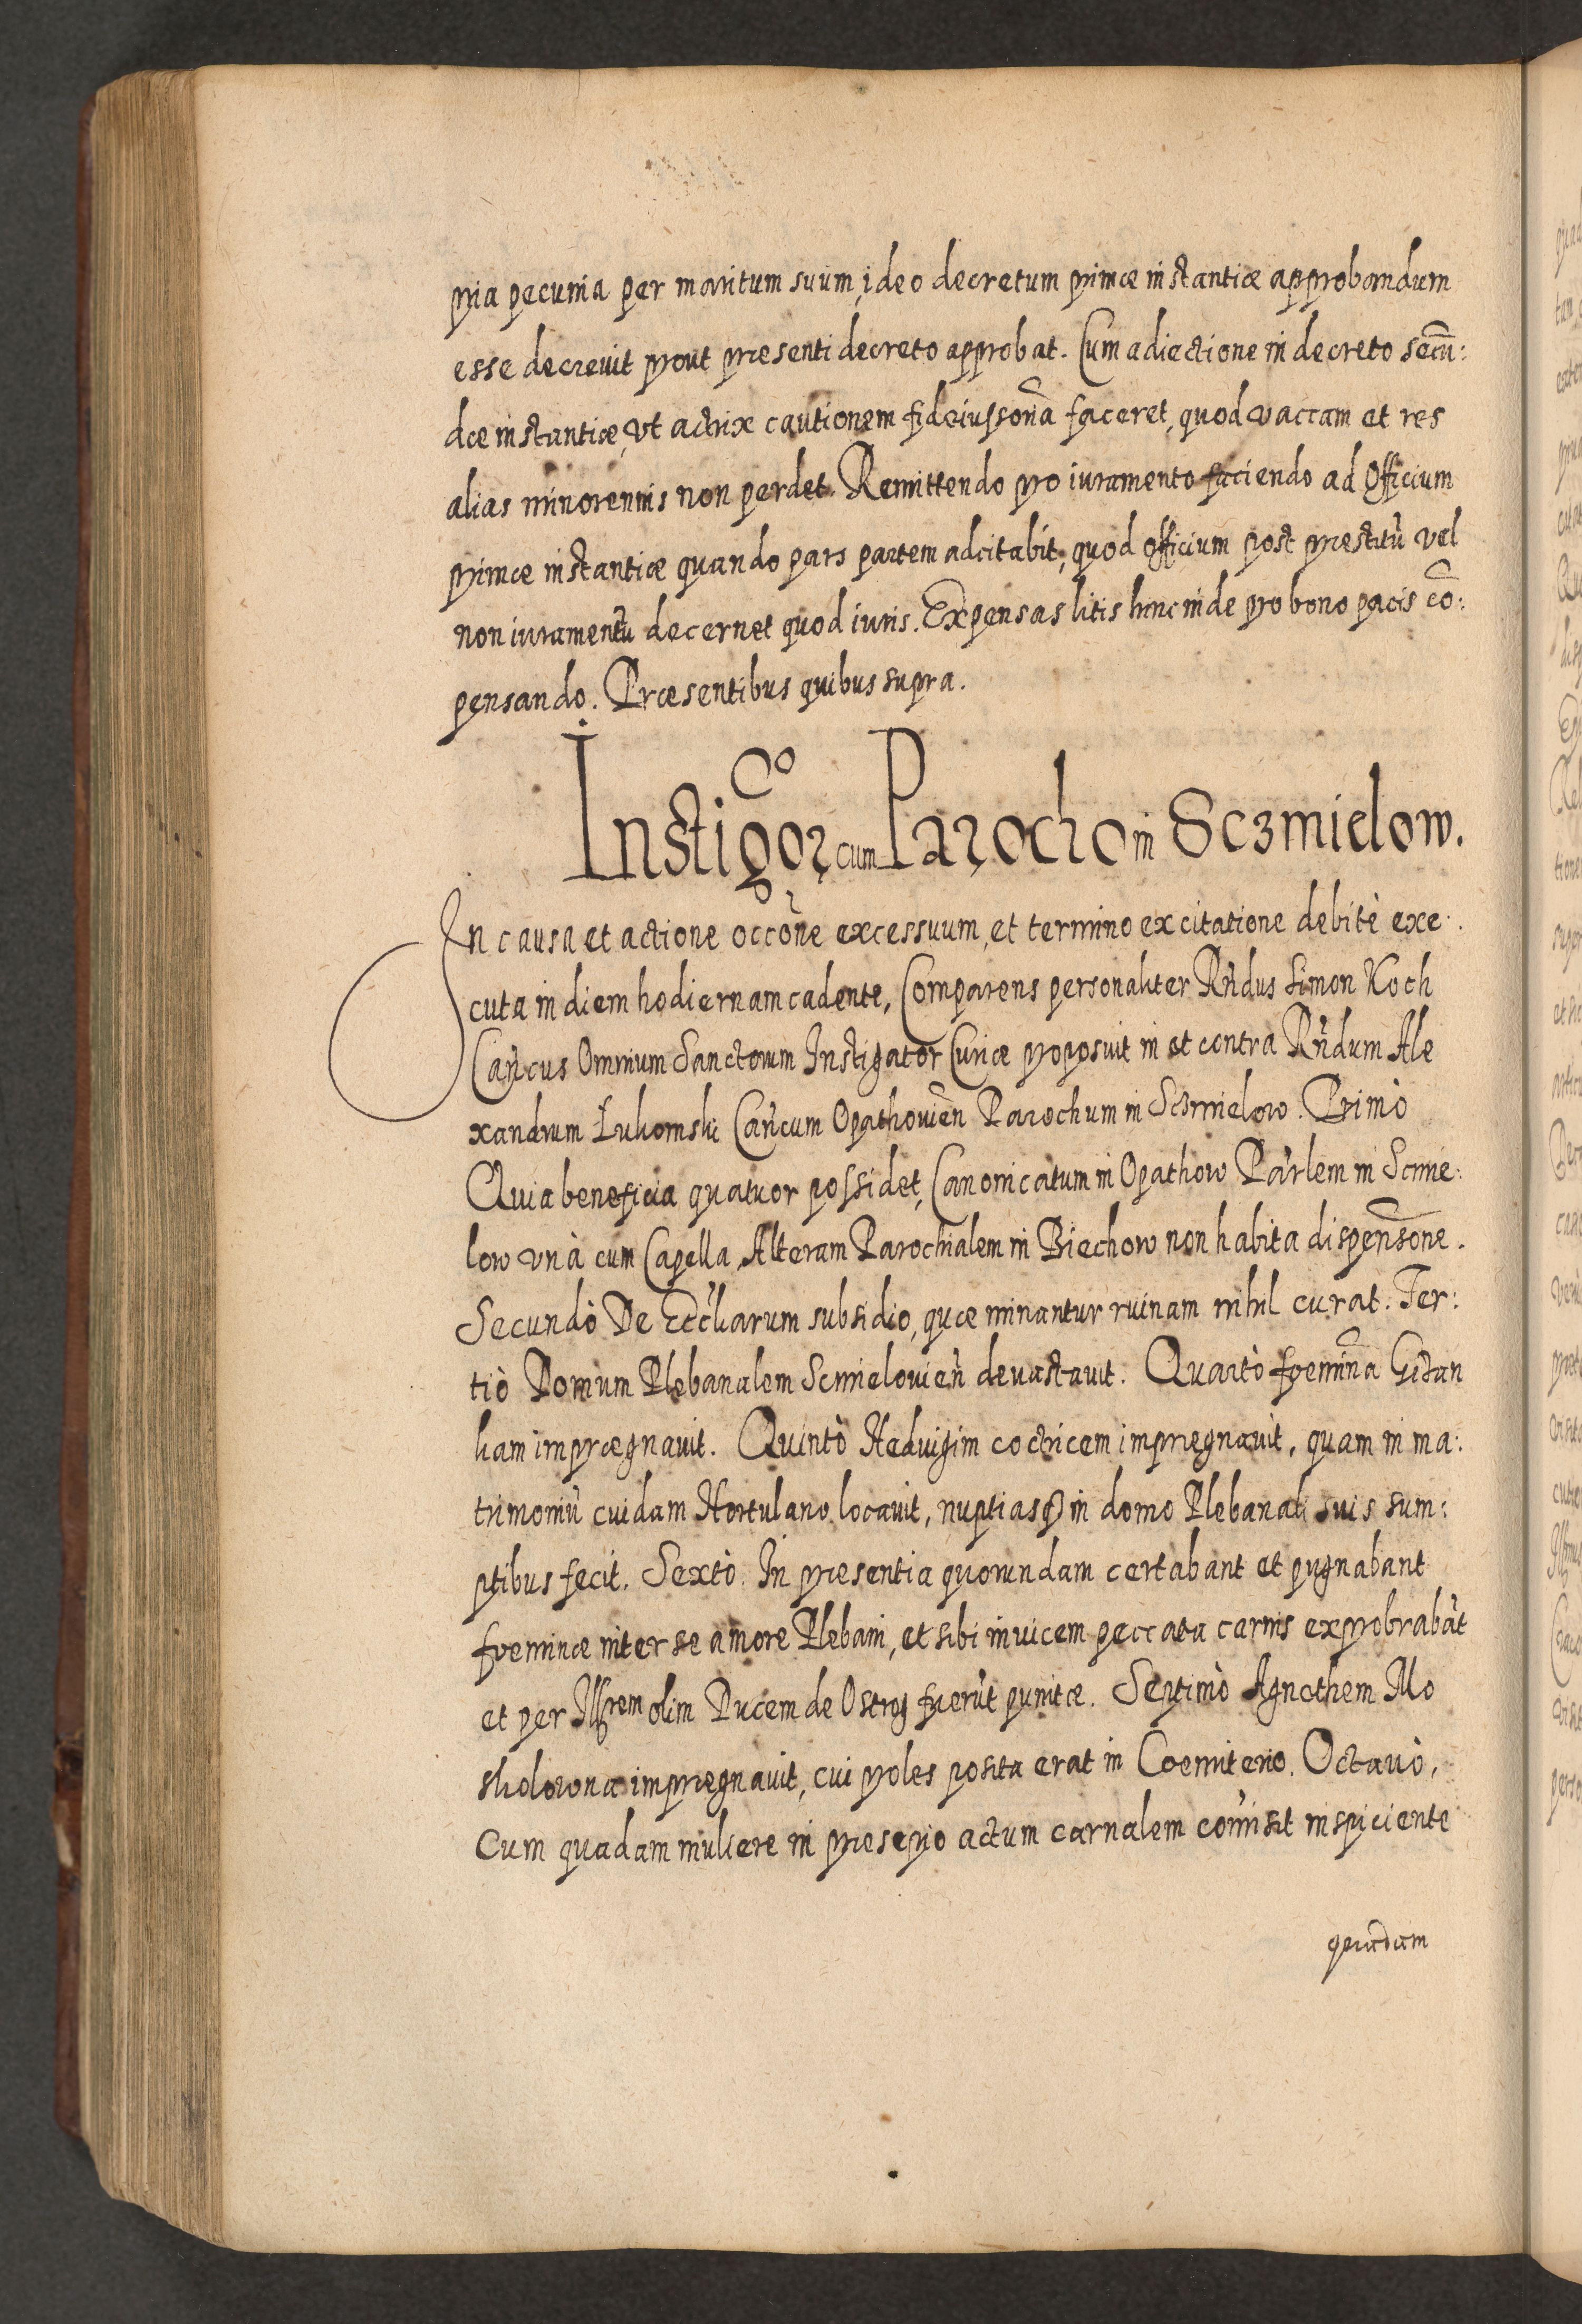 pria pecunia per maritum suum, ideo decretum primæ instantiæ approbandum
esse decrevit prout præsenti decreto approbat. Cum adiectione in decreto secū:
dæ instantiæ, vt actrix cautionem fideiussoriā faceret, quod vaccam et res
alias minorennis non perdet. Remittendo pro iuramento faciendo ad Officium
primæ instantiæ quando pars partem adcitabit, quod officium post præstitū vel
non iuramentū decernet quod iuris. Expensas litis hinc inde pro bono pacis cō:
pensando. Præsentibus quibus supra.
Instigor cum Parocho in Sczmielow.
In causa et actione occōne excessuum, et termino ex citatione debitè exe:
cuta in diem hodiernam cadente, Comparens personaliter Rndus Simon Koch
Cancus Omnium Sanctorum Instigator Curiæ proposuit in et contra Rndum Ale
xandrum Łukomski Cancum Opathouien Parochum in Sczmielow. Primò
Quia beneficia quatuor possidet, Canonicatum in Opathow Parlem in Scmie:
low vnà cum Capella, Alteram Parochialem in Biechow non habita dispensone.
Secundò De Ecclīarum subsidio, quæ minantur ruinam nihil curat. Ter:
tiò Domum Plebanalem Scmielouien deuastauit. Quartò foeminā Gidan
kam imprægnauit. Quintò Heduigim coctricem imprægnauit, quam in ma:
trimoniū cuidam Hortulano locauit, nuptiasq in domo Plebanali suis sum:
ptibus fecit. Sextò. In præsentia quorundam certabant et pugnabant
foeminæ inter se amore Plebani, et sibi inuicem peccata carnis exprobrabāt
et per Illrem olim Ducem de Ostrog fuerūt punitæ. Septimò Agnethem Mo
skolowna imprægnauit, cui proles posita erat in Coemiterio. Octauò,
Cum quadam muliere in præsepio actum carnalem comīsit inspiciente
quadam